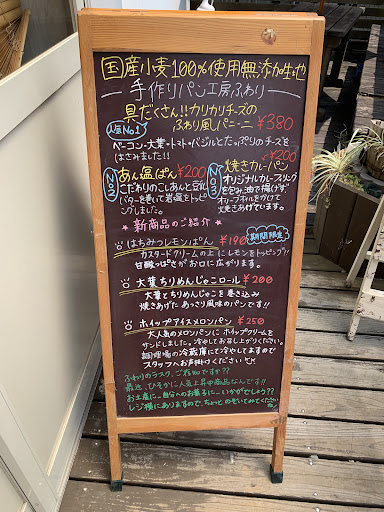 国産小麦100%使用無添加生地
手作りパン工房ふわり
具だくさん!!カリカリチーズの
人気No.1
ふわり風パニーニ ¥380
ベーコン・大葉・トマト・バジルとたっぷりのチーズを
はさみました!!
No2
あん塩ぱん ¥200
こだわりのこしあんと豆乳
バターを巻いて岩塩をトッピ
ングしました。
No3
¥200
焼きカレーパン
オリジナルカレーフィリング
を包み、油で揚げず
オリーブオイルをかけて
焼きあげています。
★新商品のご紹介★
はちみつレモンぱん ¥190 期間限定
カスタードクリームの上にレモンをトッピング!!
甘酸っぱさがお口に広がります。
大葉ちりめんじゃこロール ¥200
大葉とちりめんじゃこを巻き込み
焼きあげたあっさり風味のパンです!!
ホイップアイスメロンパン ¥250
大人気のメロンパンにホイップクリームを
サンドしました。冷やしてお召し上がりください。
調理場の冷蔵庫にて冷やしてますので
スタッフへお声掛けください
ふわりのラスク、ご存知ですか??
最近、ひそかに人気上昇中商品なんです!!
お土産に。自分へのお菓子に…いかがでしょう??
レジ横にありますので、ちょっとのぞいてみてください
ね